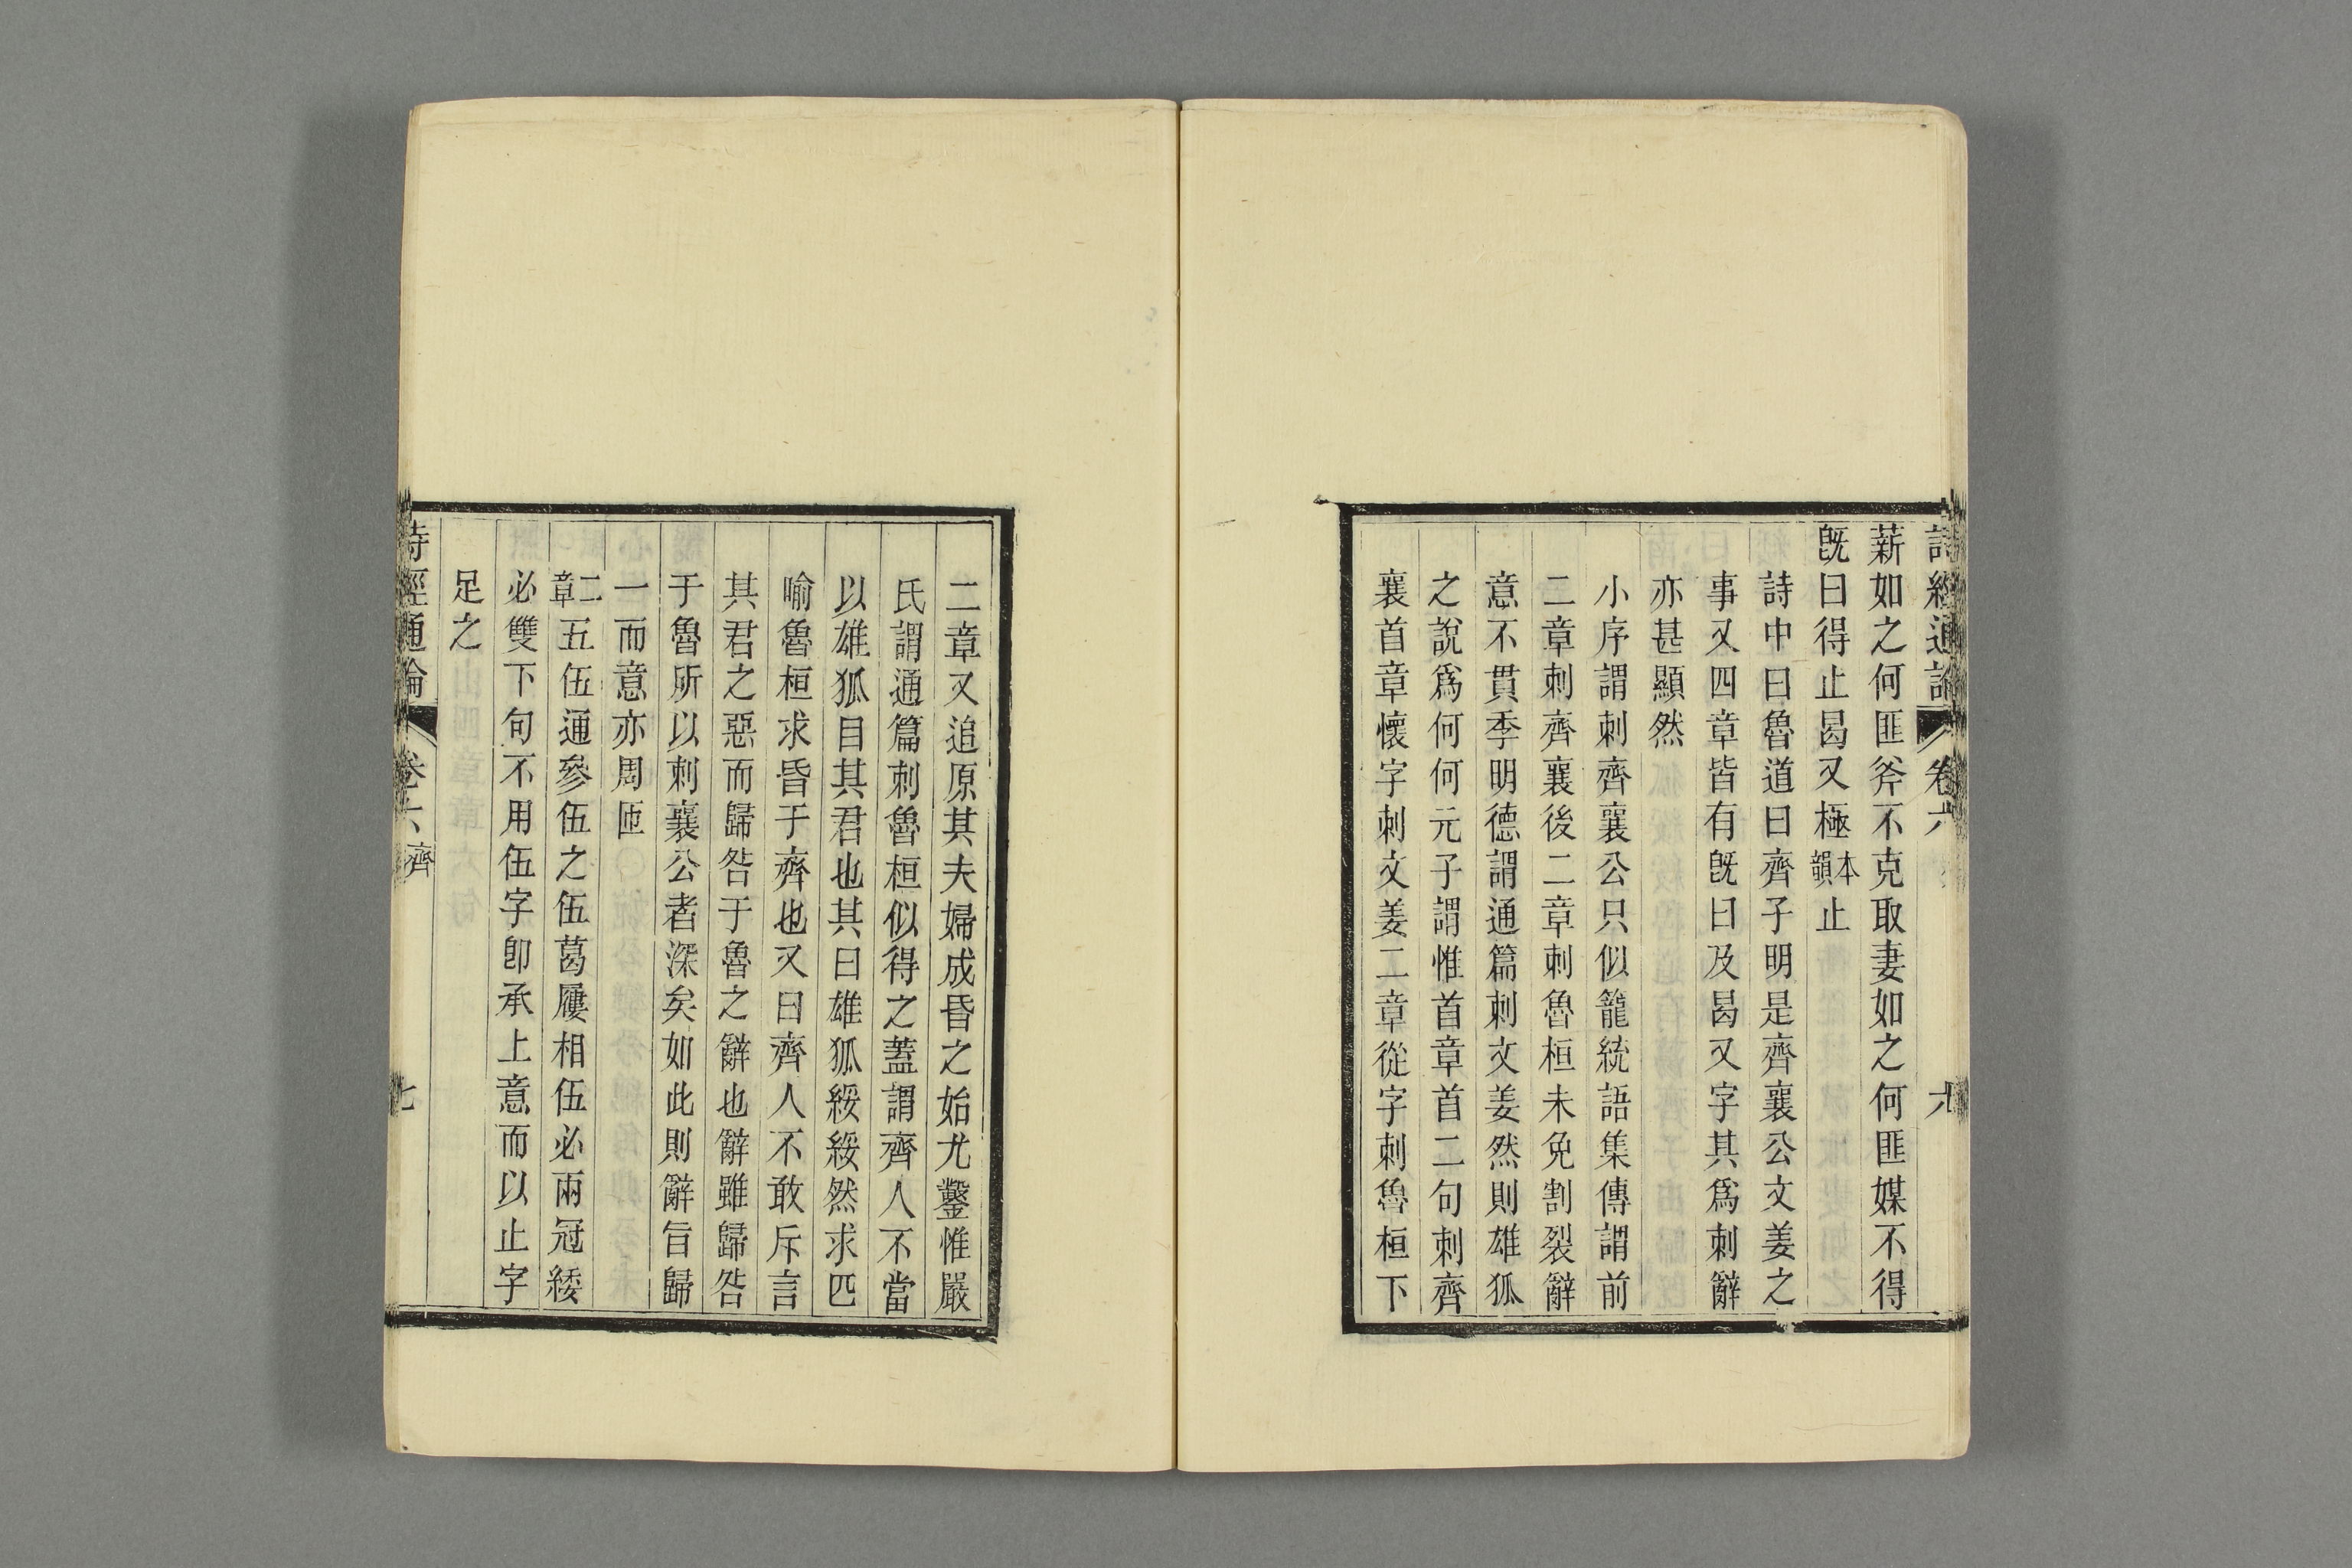 詩經通論 卷六 六
薪如之何匪斧不克取妻如之何匪媒不得
旣曰得止曷又極本韻止
詩中曰魯道曰齊子明是齊襄公文姜之
事又四章皆有旣曰及曷又字其爲刺辭
亦甚顯然
小序謂刺齊襄公只似籠統語集傳謂前
二章刺齊襄後二章刺魯桓未免割裂辭
意不貫季明德謂通篇刺文姜然則雄狐
之說爲何何元子謂惟首章首二句刺齊
襄首章懷字刺文姜二章從字刺魯桓下
二章又追原其夫婦成昏之始尤鑿惟嚴
氏謂通篇刺魯桓似得之蓋謂齊人不當
以雄狐目其君也其曰雄狐綏綏然求匹
喻魯桓求昏于齊也又曰齊人不敢斥言
其君之惡而歸咎于魯之辭也辭雖歸咎
于魯所以刺襄公者深矣如此則辭旨歸
一而意亦周匝
二章五伍通參伍之伍葛屨相伍必兩冠緌
必雙下句不用伍字卽承上意而以止字
足之
詩經通論 卷六 齊 七